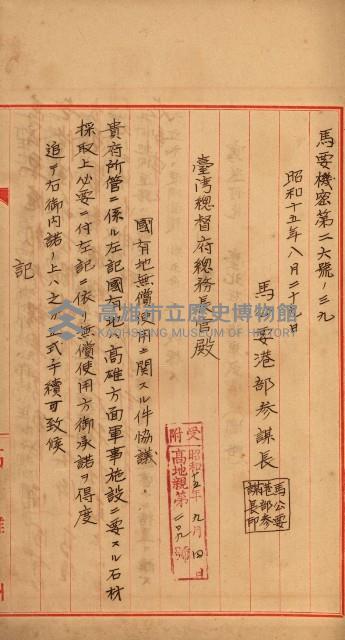 馬要機密第二六號ノ三九
昭和十五年八月二十日
馬公要港部參謀長
馬公要港部參謀長印
臺灣總督府總務長官殿
國有地無償使用ニ關スル件協議
受附
昭和十五年九月四日
高地親第
號
貴府所管ニ係ル左記國有地高雄方面軍事施設ニ要スル石材
採取上必要ニ付左記ニ依リ無償使用方御承諾ヲ得度
追テ右御內諾ノ上ハ正式手續可致候
記
高雄市立歷史博物館
KAOHSIUNG MUSEUM OF HISTORY